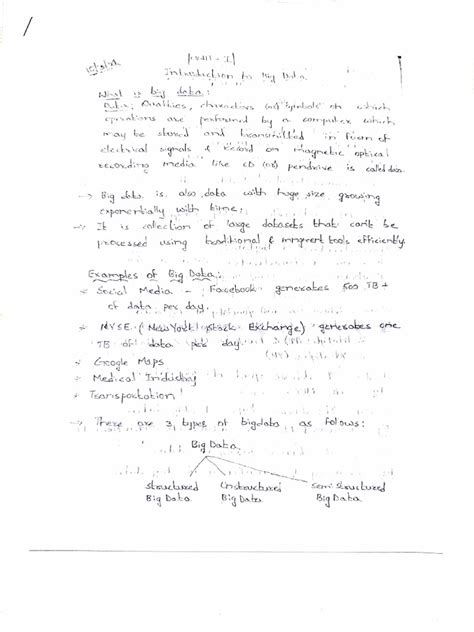 [UNIT - I]
Introduction to Big Data
What is big data:
Data: Qualities, characters (or) "symbols" on which
operations are performed by a computer which
may be stored and transmitted in form of
electrical signals & record on magnetic optical
recording media like CD (or) pendrive is called data.
→ Big data is also data with huge size, growing
exponentially with time.
→ It is collection of large datasets that can't be
processed using traditional & mngment tools efficiently.
Examples of Big Data:
* Social Media - Facebook generates 500 TB+
of data per day.
* NYSE (NewYork Stock Exchange) generates one
TB of data per day
* Google Maps
* Medical
* Transportation
→ There are 3 types of bigdata as follows:
Big Data
structured Unstructured Semi Structured
Big Data Big Data Big Data